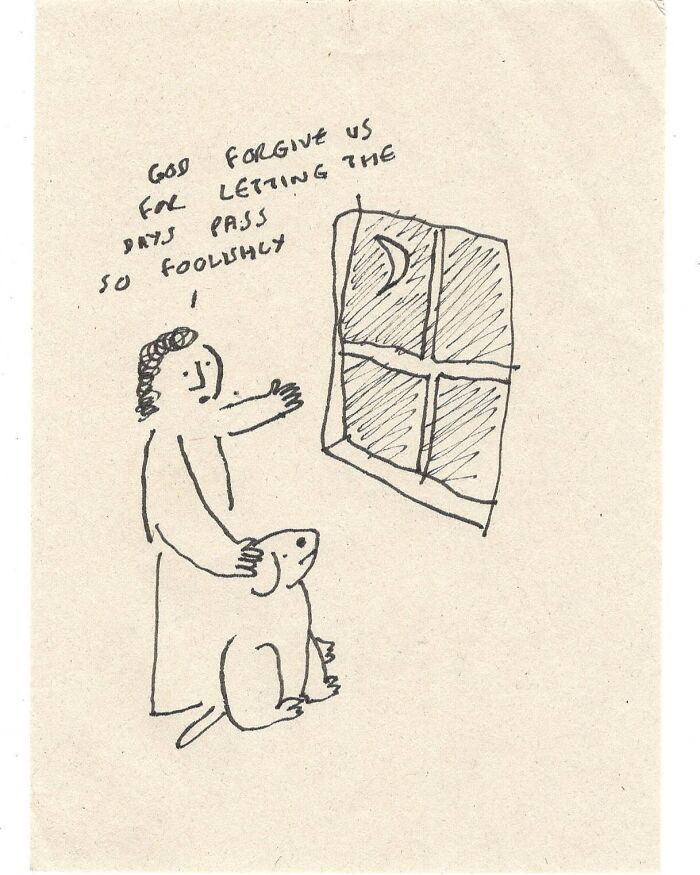 GOD FORGIVE US
FOR LETTING THE
DAYS PASS
SO FOOLISHLY